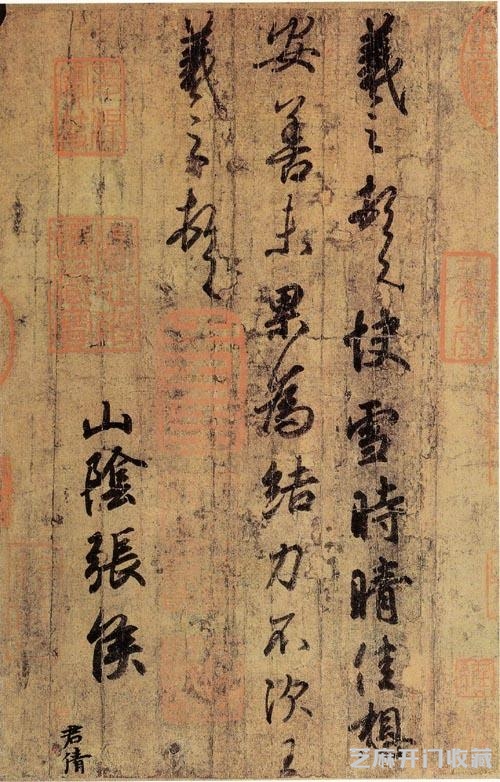 羲之頓首快雪時晴佳想
安善未果為結力不次王
羲之頓首
山陰張侯
君倩
芝麻开门收藏